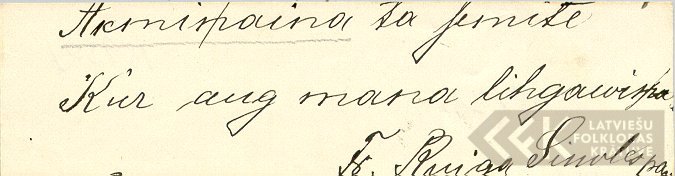 Akmiņaina ta semite
Kur aug mana lihgawiņa.
Fr. Ruiga
LATVIEŠU
FOLKLORAS
KRĀTUVE